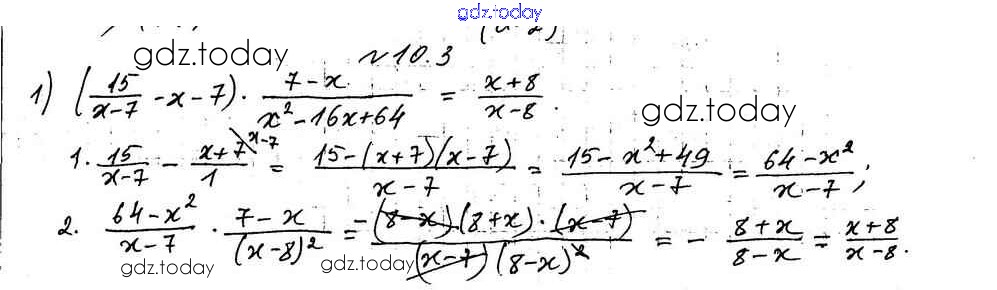 gdz.today
gdz.today
№ 10.3
1) (15/(x-7) - x - 7) · (7-x)/(x²-16x+64) = (x+8)/(x-8).
gdz.today
1. 15/(x-7) - (x+7)/1 \x-7 = (15-(x+7)(x-7))/(x-7) = (15-x²+49)/(x-7) = (64-x²)/(x-7);
2. (64-x²)/(x-7) · (7-x)/(x-8)² = -(8-x)(8+x)·(x-7)/((x-7)(8-x)²) = - (8+x)/(8-x) = (x+8)/(x-8).
gdz.today
gdz.today
gdz.today